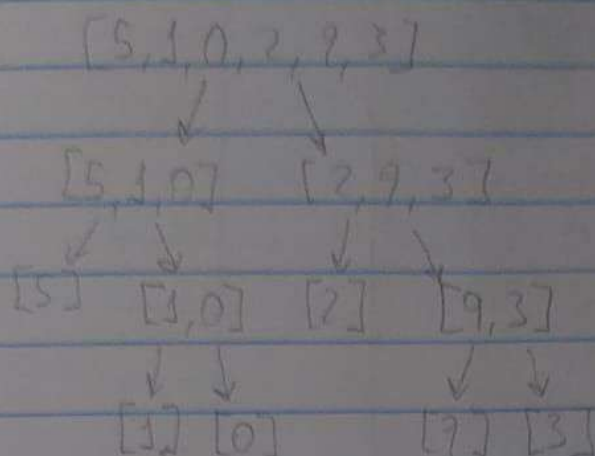 [5,1,0,2,9,3]
[5,1,0] [2,9,3]
[5] [1,0] [2] [9,3]
[1] [0] [9] [3]